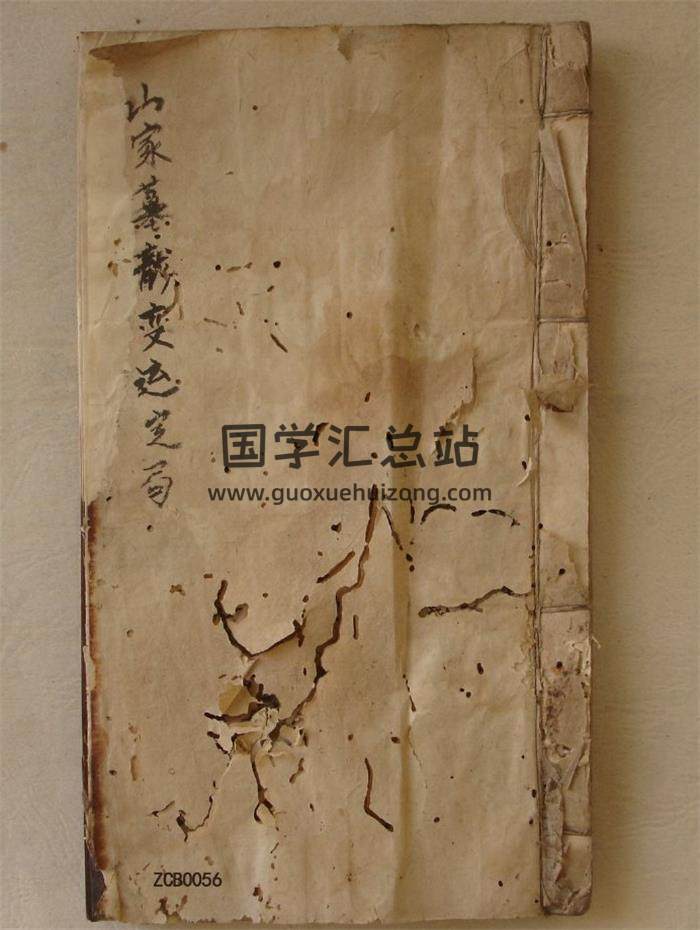 山家墓龍变运定局
国学汇总站
www.guoxuehuizong.com
ZCB0056